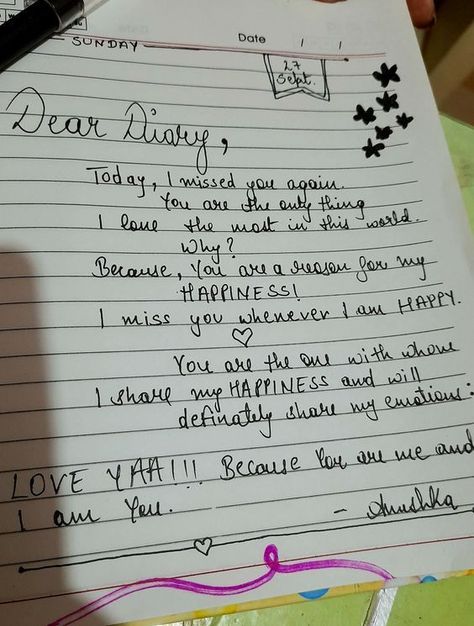 SUNDAY
Date / /
27
Sept.
Dear Diary,
Today, I missed you again.
You are the only thing
I love the most in this world.
Why?
Because, You are a reason for my
HAPPINESS!
I miss you whenever I am HAPPY.
You are the one with whom
I share my HAPPINESS and will
definately share my emotions.
LOVE YAA!!! Because You are me and
I am You.
- Anushka